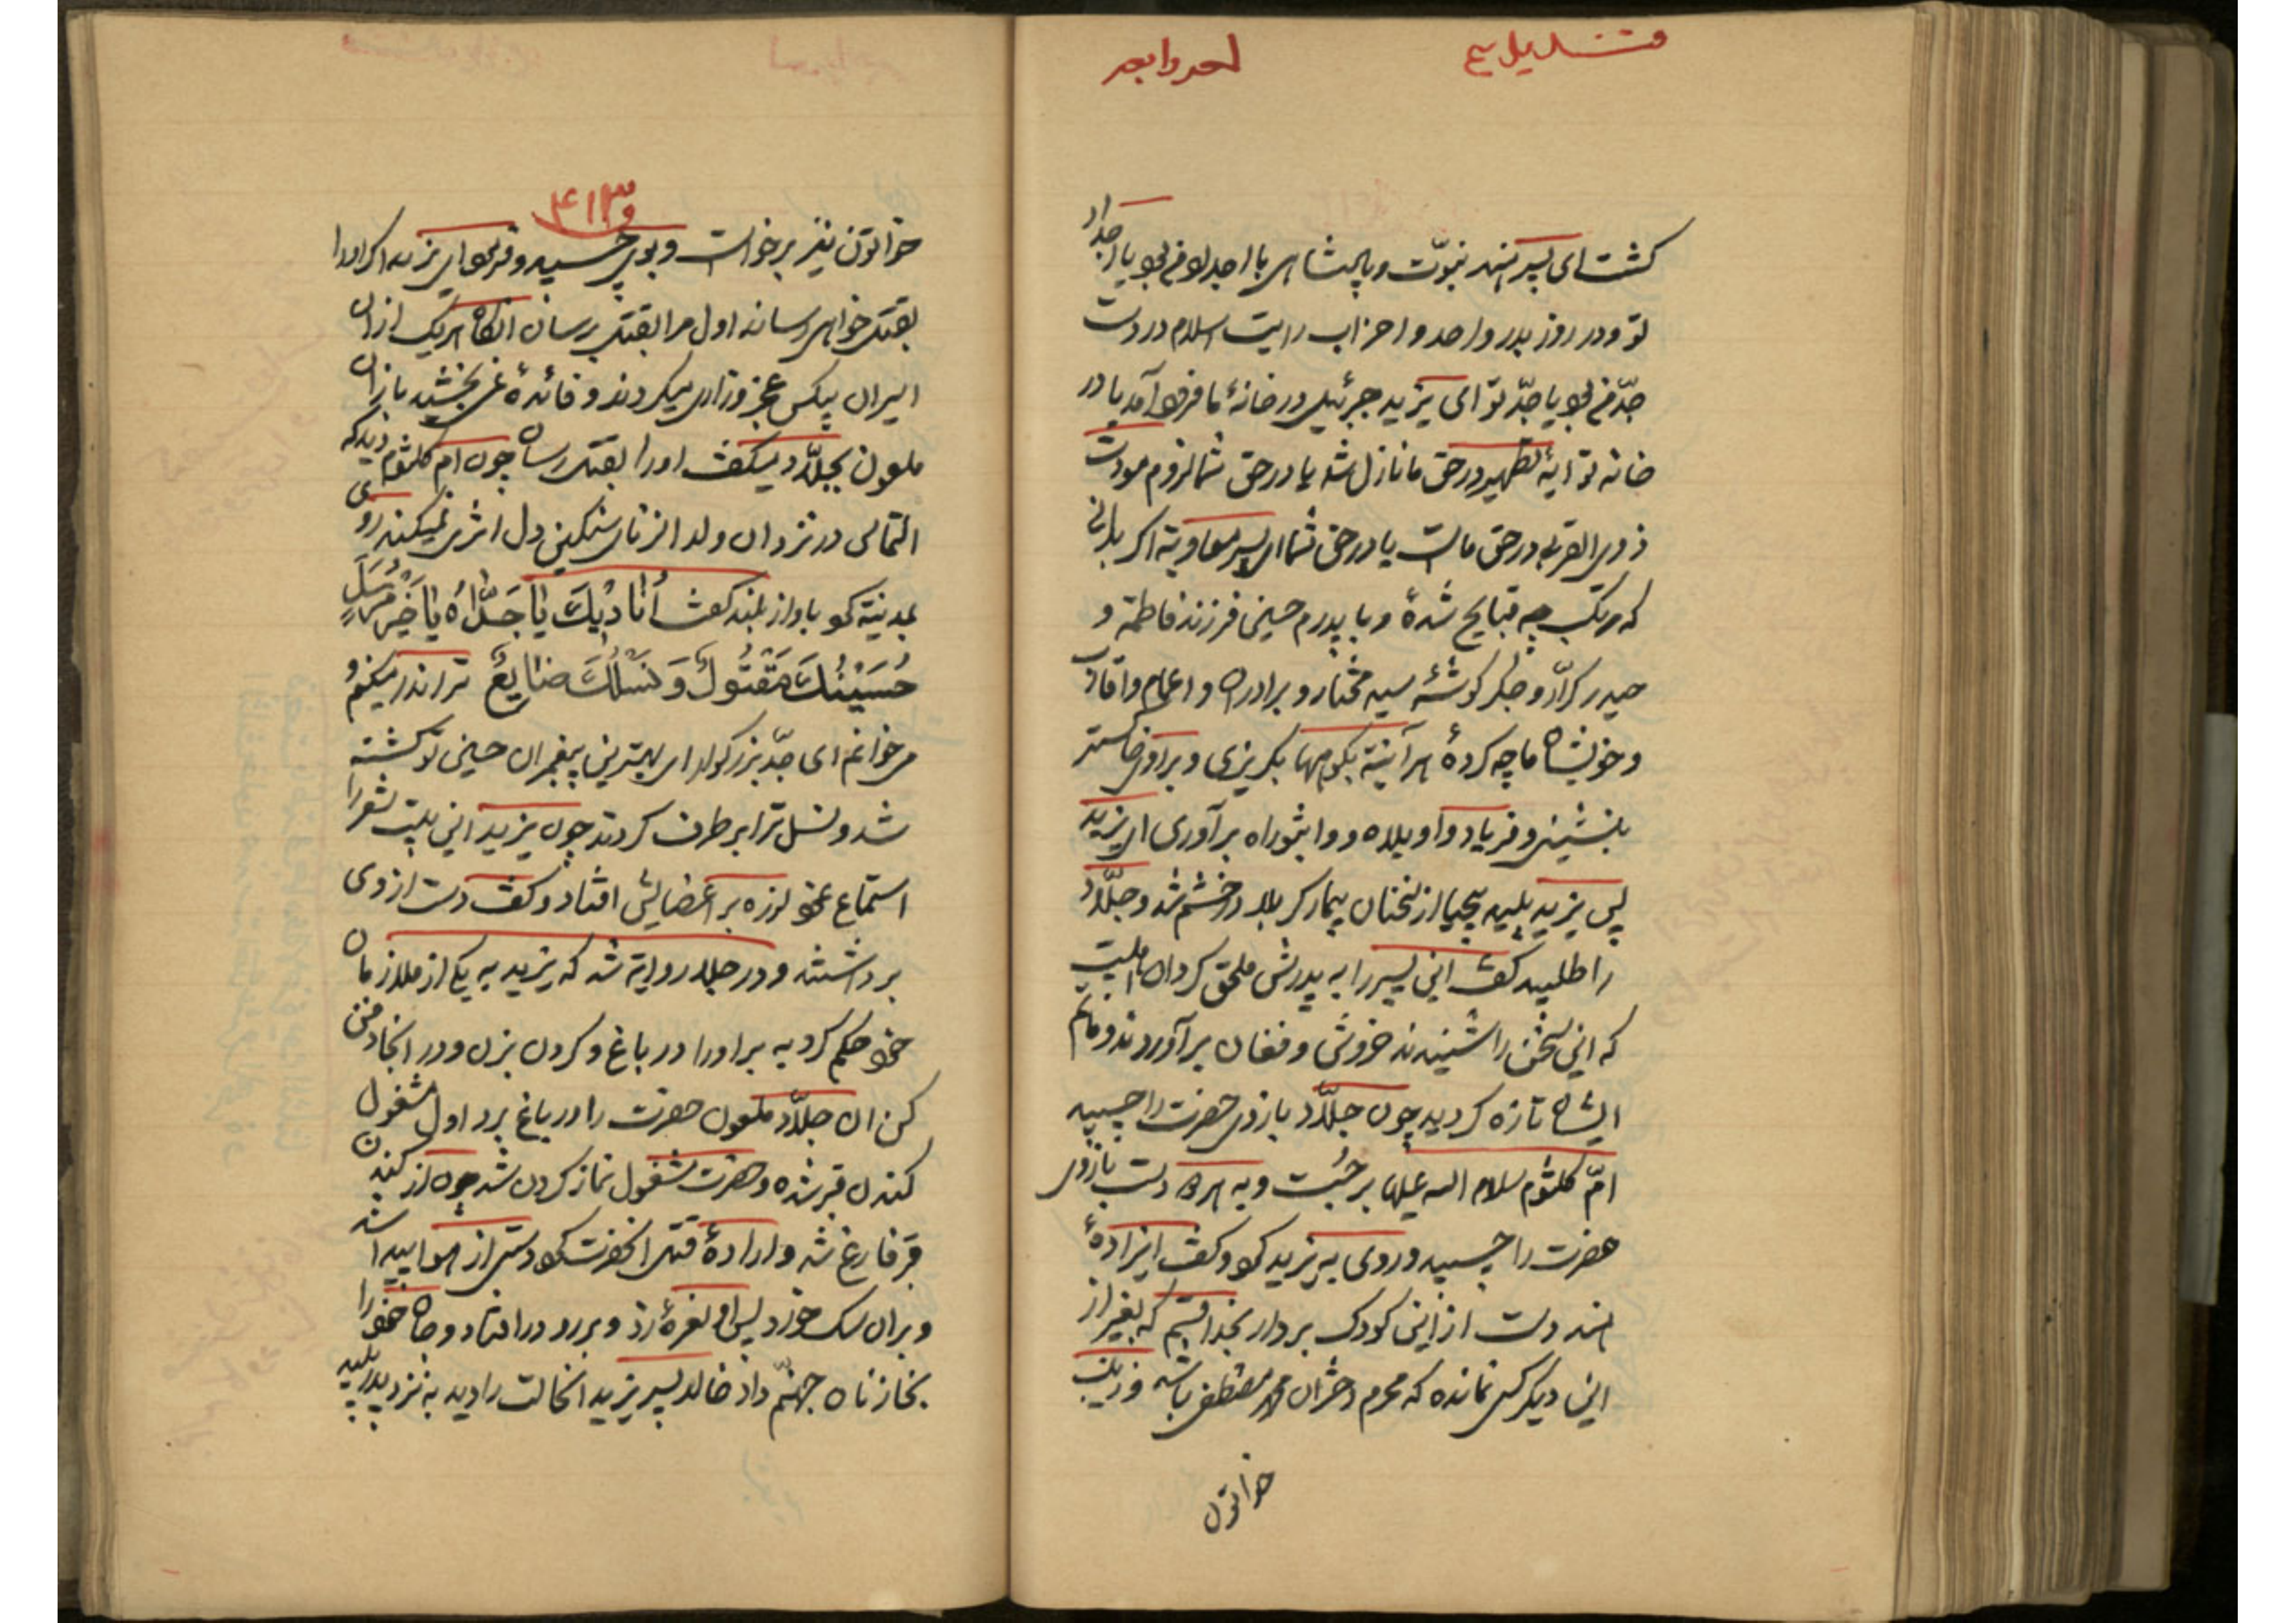 کشت ای پسر هند نبوّت و پادشاهی با اجداد من بود یا اجداد
تو و در روز بدر و احد و احزاب رایت اسلام در دست
جدّ من بود یا جدّ تو ای یزید جبرئیل در خانهٔ ما فرود آمد یا در
خانه تو آیهٔ تطهیر در حق ما نازل شد یا در حق شما لزوم مودت
ذوی القربی در حق ماست یا در حق شما ای پسر معاویة اکر بدانی
که مرتکب چه قبایح شدهٔ و با پدرم حسین فرزند فاطمة و
حیدر کرّار و جکر کوشهٔ سید مختار و برادران و اعمام و اقارب
و خویشان ما چه کردهٔ هر آینة بکوهها بکریزی و بر روی خاکستر
بنشینی و فریاد واویلاه و واثبوراه برآوری ای یزید
پس یزید پلید بیحیا از سخنان بیمار کربلا در خشم شد و جلّاد
را طلبید کفت این پسر را به پدرش ملحق کردان اهلبیت
که این سخن را شنیدند خروش و فغان برآوردند و ماتم
ایشان تازه کردید چون جلّاد بازوی حضرت را چسپید
امّ کلثوم سلام الله علیها برجست و به هر دو دست بازوی
حضرت را چسپید و روی به یزید کرد و کفت ای زادهٔ
هند دست از این کودک بردار بخدا قسم که بغیر از
این دیکر کسی نمانده که محرم دختران محمد مصطفی باشد و زینب
خواتون
۴۱۳
خواتون نیز برخواست و بوی چسپید و فرمود ای یزید اکر او را
بقتل خواهی رسانید اول مرا بقتل برسان انکاه هر یک از ان
اسیران بیکس عجز و زاری میکردند و فائدهٔ نمی بخشید باز ان
ملعون بجلّاد میکفت او را بقتل رسان چون امّ کلثوم دید که
التماس در نزد ان ولد الزنای سنکین دل اثری نمیکند روی
بمدینة کرد باواز بلند کفت أُنَادِیكَ یَا جَدَّاهُ یَا خَیْرَ مُرْسَلٍ
حُسَیْنُكَ مَقْتُولٌ وَ نَسْلُكَ ضَایِعٌ ترا ندا میکنم و
میخوانم ای جدّ بزرکوار ای بهترین پیغمبران حسین تو کشته
شد و نسل ترا بر طرف کردند چون یزید این بیت شعر را
استماع نمود لرزه بر اعضایش افتاد و کفت دست از وی
برداشتند و در جلاء روایة شد که یزید به یکی از ملازمان
خود حکم کرد به بر او را در باغ و کردن بزن و در انجا دفن
کن ان جلّاد ملعون حضرت را در باغ برد اول مشغول
کندن قبر شده و حضرت مشغول نماز کردن شد چون از کندن
قبر فارغ شد و ارادهٔ قتل انحضرت کرد دستی از هوا پیدا شد
و بر ان سک خورد پس او نعرهٔ زد و برو در افتاد و جان خود را
بخازنان جهنّم داد خالد پسر یزید انحالت را دید به نزد پدر پلید